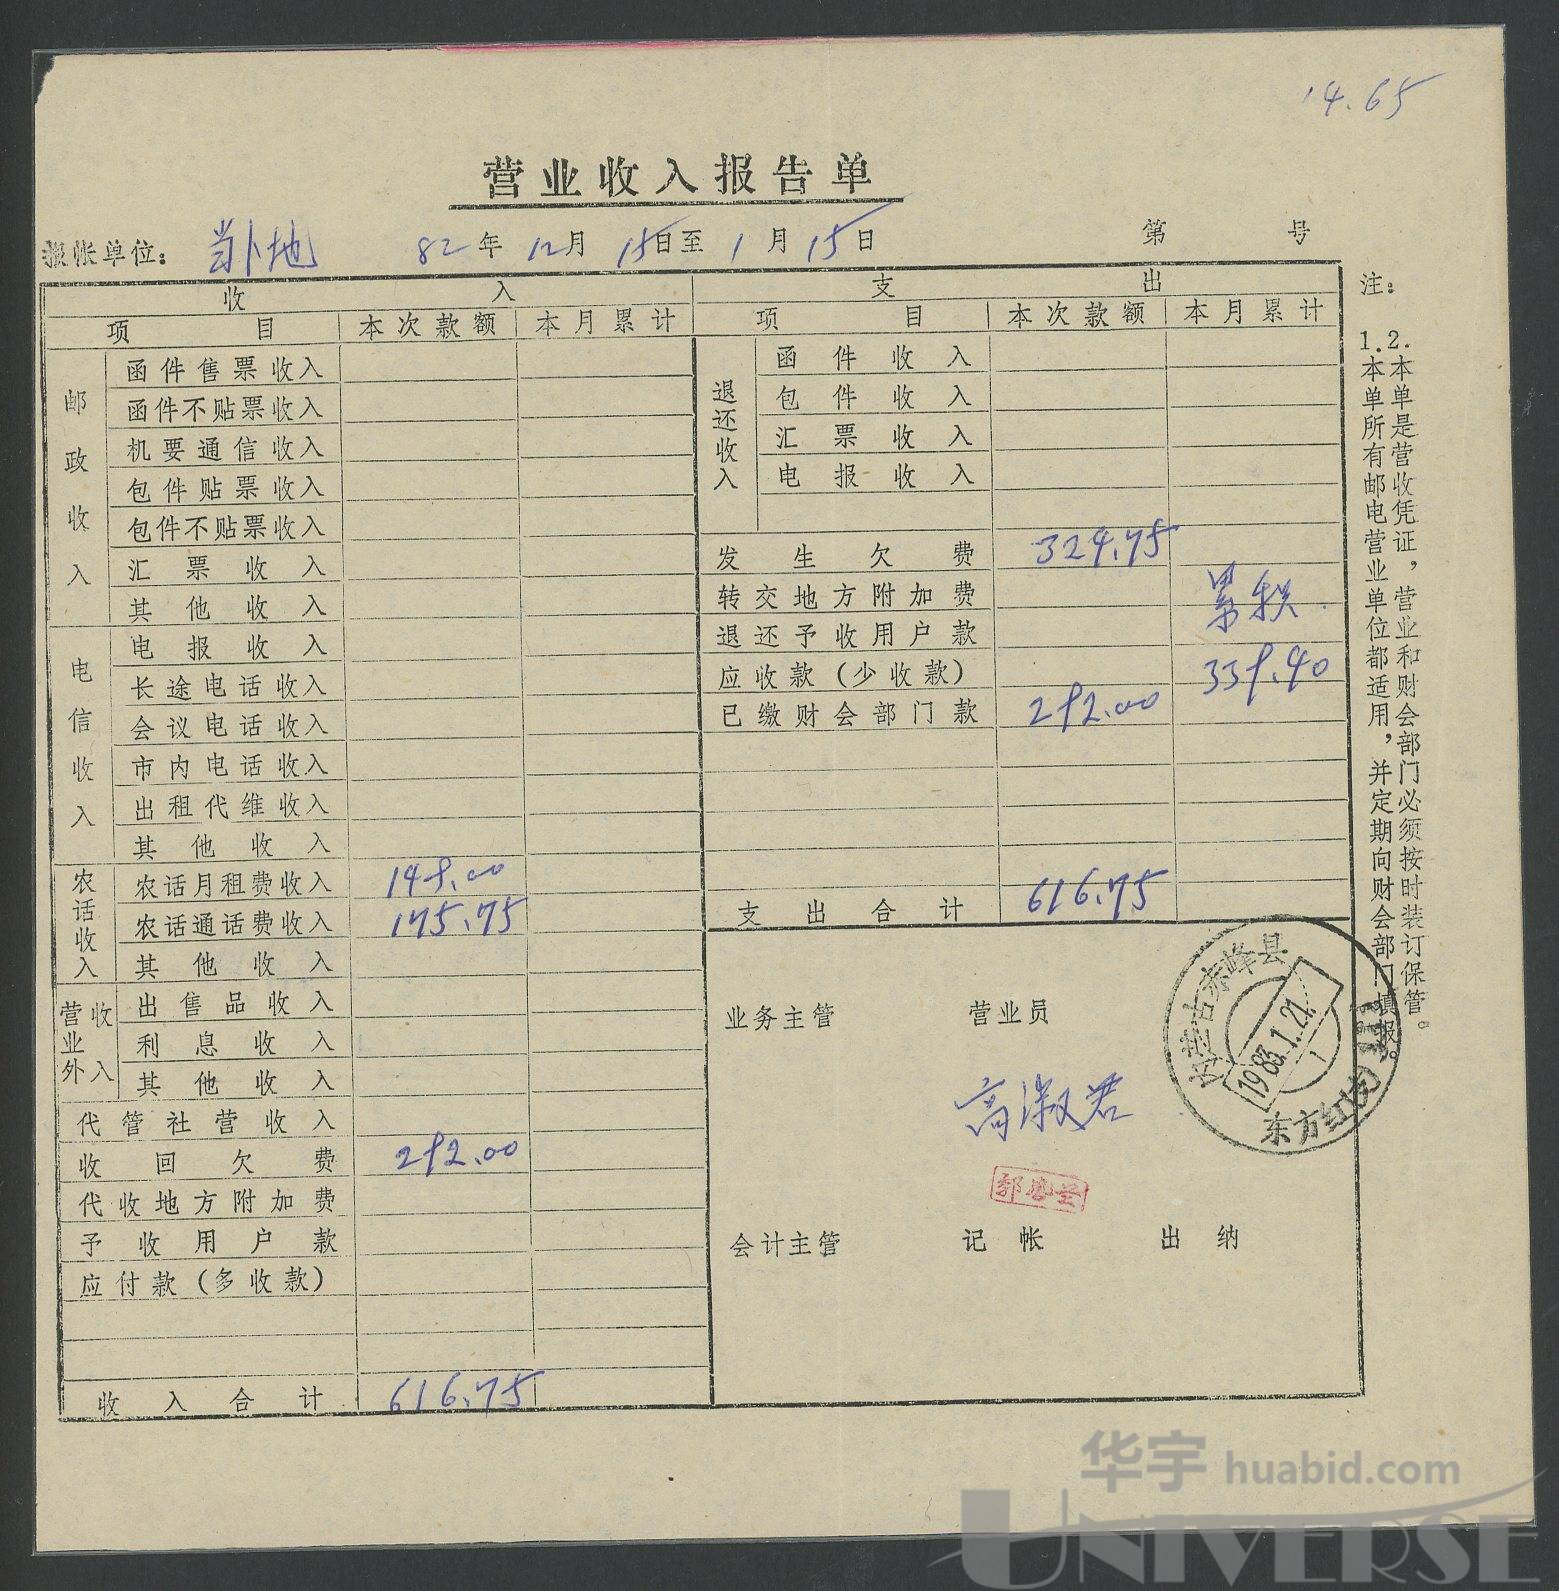 14.65
营业收入报告单
报帐单位：当卜地 82年12月15日至1月15日 第 号
收 入 支 出
项 目 本次款额 本月累计 项 目 本次款额 本月累计
邮政收入
函件售票收入
函件不贴票收入
机要通信收入
包件贴票收入
包件不贴票收入
汇票收入
其他收入
电信收入
电报收入
长途电话收入
会议电话收入
市内电话收入
出租代维收入
其他收入
农话收入
农话月租费收入 149.00
农话通话费收入 175.75
其他收入
营业外收入
出售品收入
利息收入
其他收入
代管社营收入
收回欠费 292.00
代收地方附加费
予收用户款
应付款（多收款）
收入合计 616.75
退还收入
函件收入
包件收入
汇票收入
电报收入
发生欠费 324.75
转交地方附加费 累积
退还予收用户款
应收款（少收款） 339.40
已缴财会部门款 292.00
支出合计 616.75
业务主管 营业员
高淑君
会计主管 记帐 出纳
内蒙古赤峰县
1983.1.21.
1
东方红
注：
1.本单所有邮电营业单位都适用，并定期向财会部门填报。
2.本单是营收凭证，营业和财会部门必须按时装订保管。
华宇 huabid.com
UNIVERSE